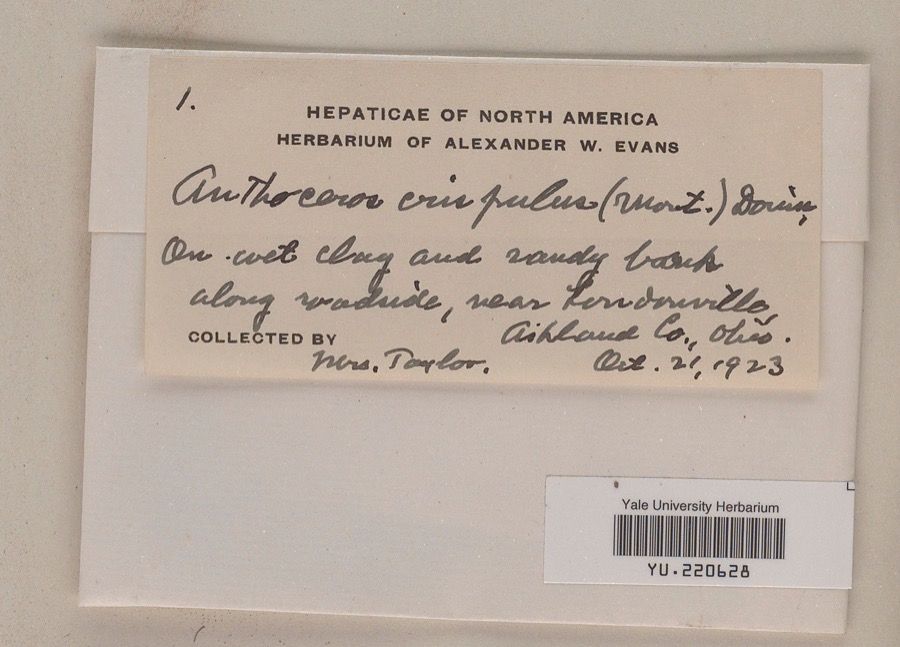 1.
HEPATICAE OF NORTH AMERICA
HERBARIUM OF ALEXANDER W. EVANS
Anthoceros crispulus (Mont.) Douin,
On wet clay and sandy bank
along roadside, near Loudonville,
Ashland Co., Ohio.
COLLECTED BY
Mrs. Taylor. Oct. 21, 1923
Yale University Herbarium
YU.220628